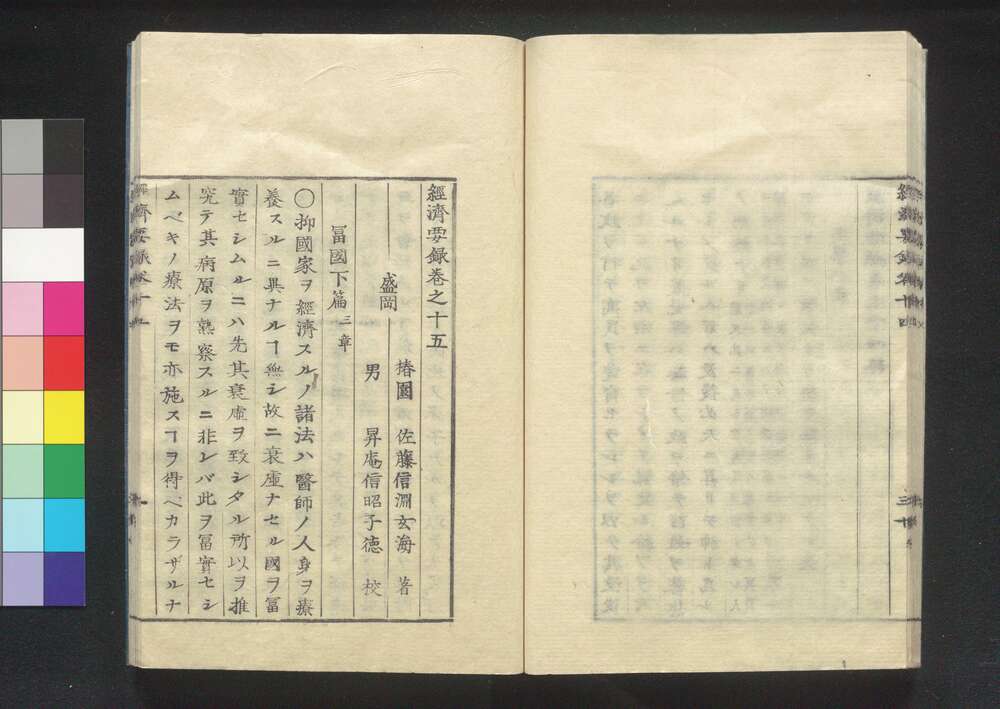 經濟要録巻之十五
盛岡
椿園 佐藤信淵玄海 著
男 昇庵信昭子徳 校
冨國下篇 三章
〇抑國家ヲ經濟スルノ諸法ハ醫師ノ人身ヲ療
養スルニ異ナルヿ無シ故ニ衰虚ナセル國ヲ冨
實セシムルニハ先其衰虚ヲ致シタル所以ヲ推
究テ其病原ヲ熟察スルニ非レバ此ヲ冨實セシ
ムベキノ療法ヲモ亦施スヿヲ得ベカラザルナ